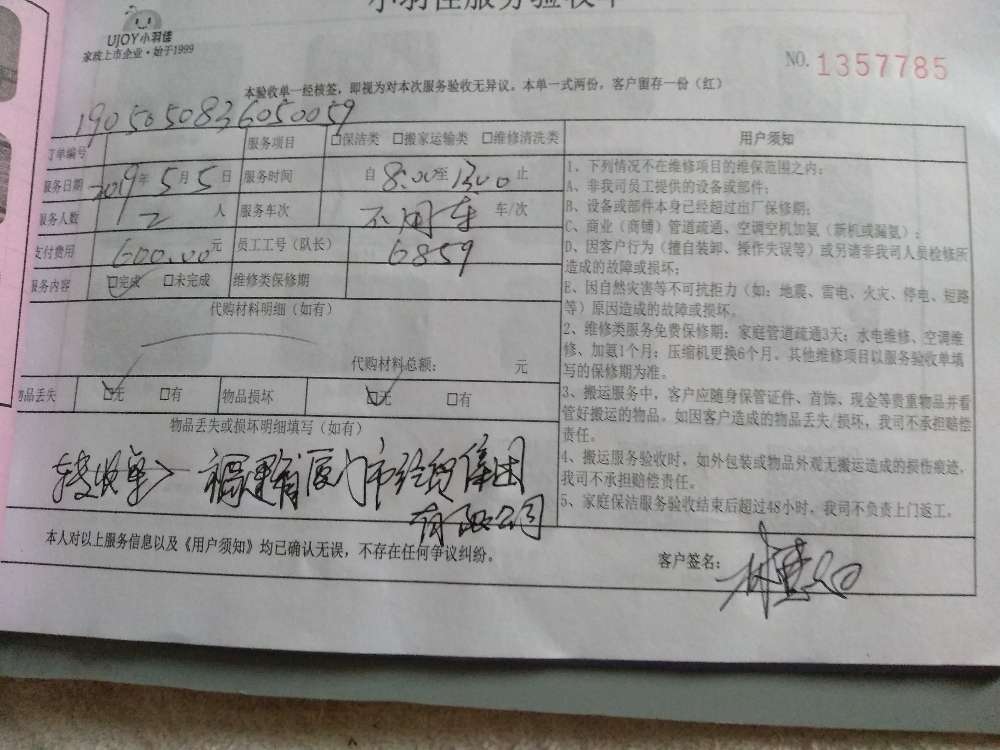 小羽佳服务验收单
UJOY小羽佳
家政上市企业·始于1999
NO. 1357785
本验收单一经核签,即视为对本次服务验收无异议。本单一式两份,客户留存一份(红)
1905050836050059
订单编号 服务项目 □保洁类 □搬家运输类 □维修清洗类
服务日期 2019年5月5日 服务时间 自8:00至13:00止
服务人数 2人 服务车次 不用车 车/次
支付费用 600.00元 员工工号(队长) 6859
服务内容 □完成 □未完成 维修类保修期
代购材料明细(如有)
代购材料总额: 元
物品丢失 □无 □有 物品损坏 □无 □有
物品丢失或损坏明细填写(如有)
福建省厦门市经贸集团
有限公司
本人对以上服务信息以及《用户须知》均已确认无误,不存在任何争议纠纷。
用户须知
1、下列情况不在维修项目的维保范围之内:
A、非我司员工提供的设备或部件;
B、设备或部件本身已经超过出厂保修期;
C、商业(商铺)管道疏通、空调空机加氨(新机或漏氨);
D、因客户行为(擅自装卸、操作失误等)或另请非我司人员检修所
造成的故障或损坏;
E、因自然灾害等不可抗拒力(如:地震、雷电、火灾、停电、短路
等)原因造成的故障或损坏。
2、维修类服务免费保修期:家庭管道疏通3天;水电维修、空调维
修、加氨1个月;压缩机更换6个月。其他维修项目以服务验收单填
写的保修期为准。
3、搬运服务中,客户应随身保管证件、首饰、现金等贵重物品并看
管好搬运的物品。如因客户造成的物品丢失/损坏,我司不承担赔偿
责任。
4、搬运服务验收时,如外包装或物品外观无搬运造成的损伤痕迹,
我司不承担赔偿责任。
5、家庭保洁服务验收结束后超过48小时,我司不负责上门返工。
客户签名: